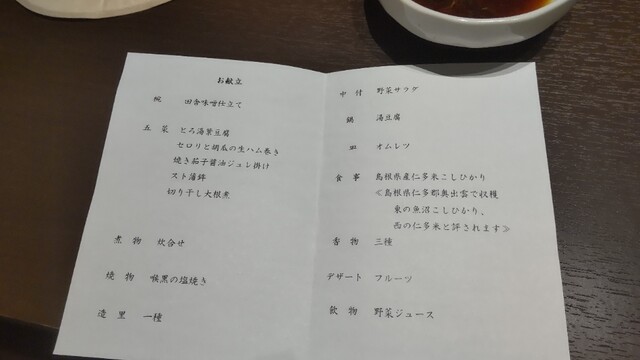 お献立
椀 田舎味噌仕立て
五菜 とろ湯葉豆腐
セロリと胡瓜の生ハム巻き
焼き茄子醤油ジュレ掛け
スト蒲鉾
切り干し大根煮
煮物 炊合せ
焼物 喉黒の塩焼き
造里 一種
中付 野菜サラダ
鍋 湯豆腐
皿 オムレツ
食事 島根県産仁多米こしひかり
≪島根県仁多郡奥出雲で収穫
東の魚沼こしひかり、
西の仁多米と評されます≫
香物 三種
デザート フルーツ
飲物 野菜ジュース